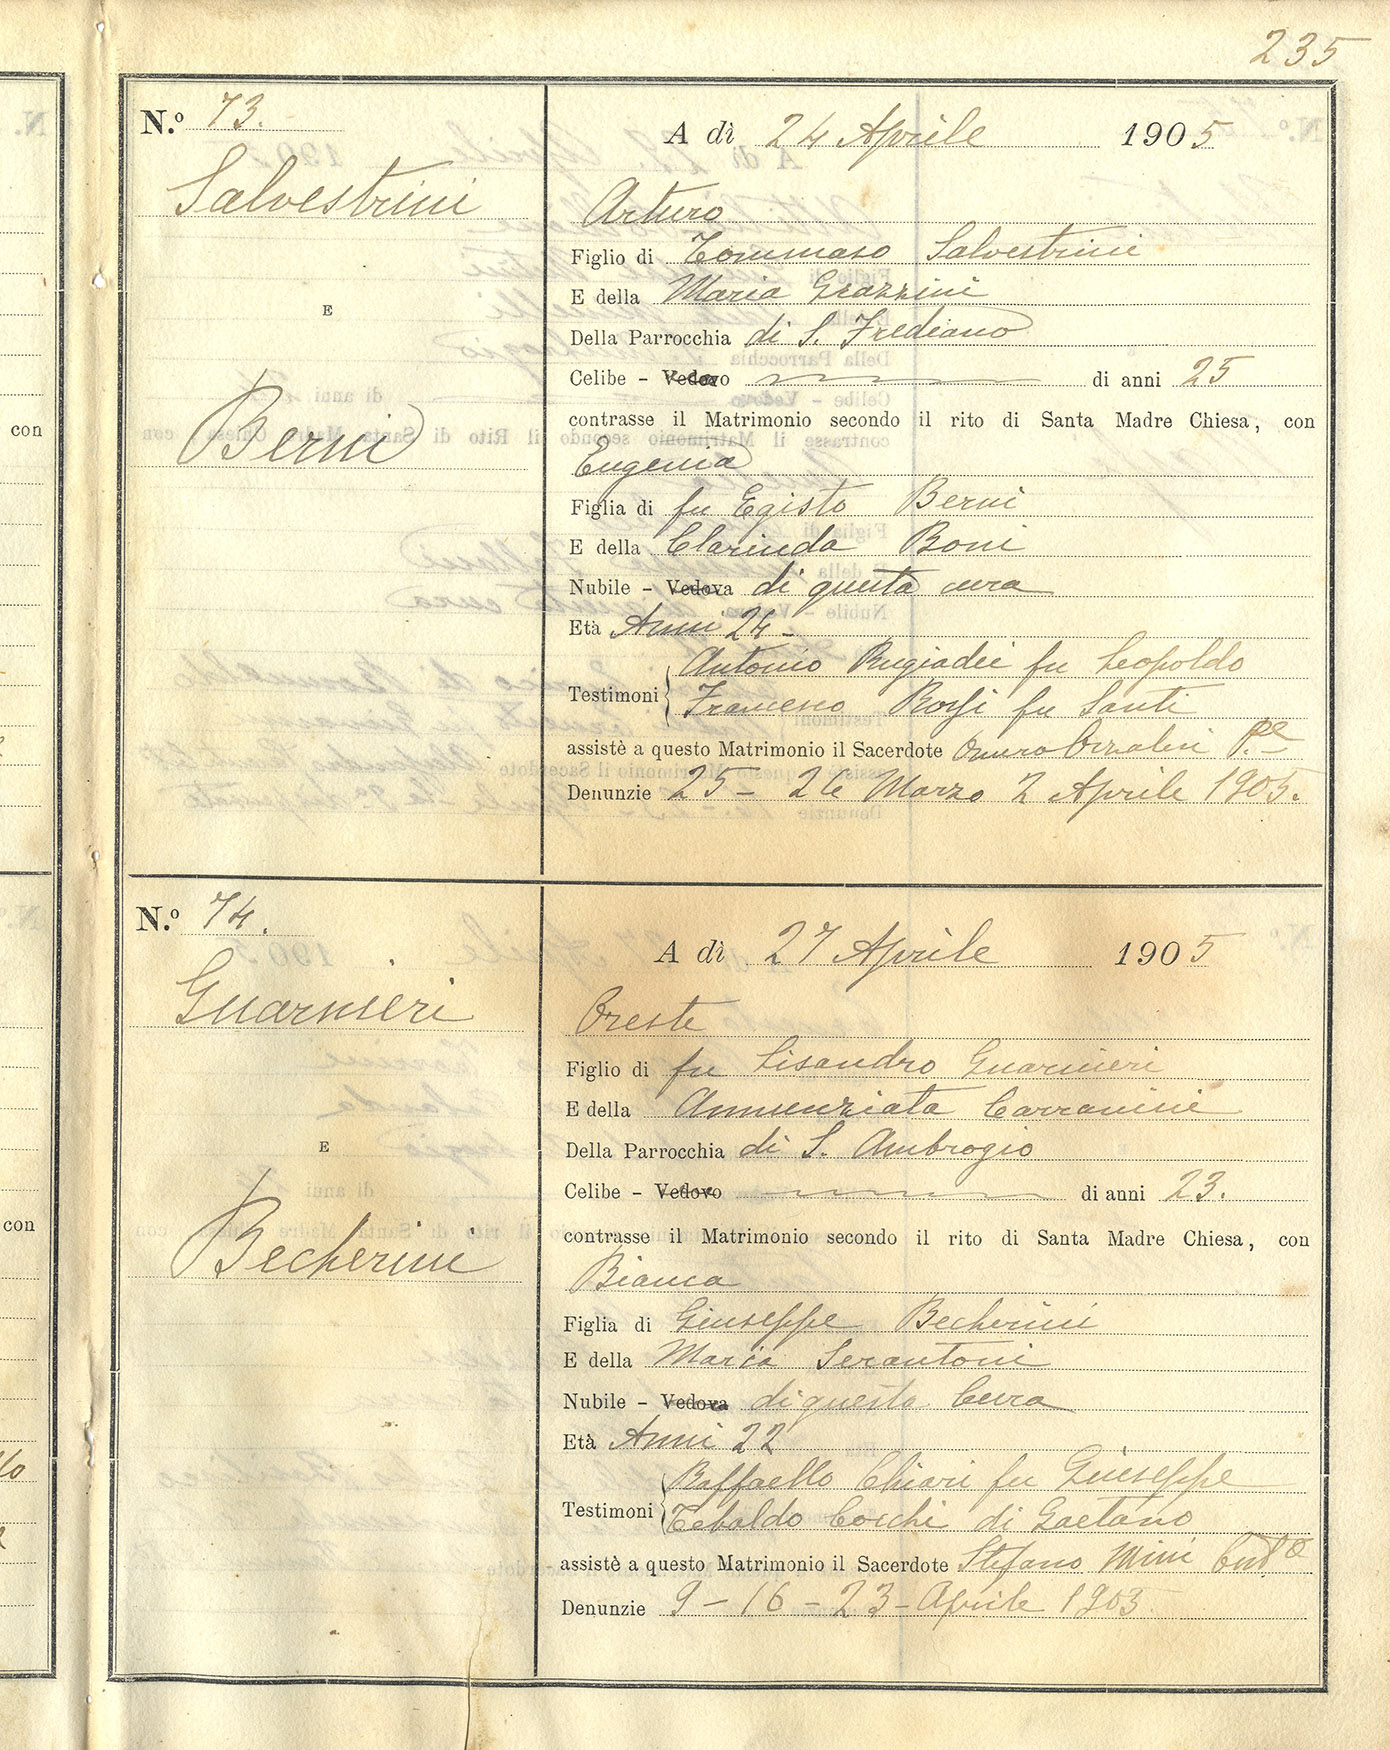 235
N.º 73.
Salvestrini
E
Berni
A dì 24 Aprile 1905
Arturo
Figlio di Tommaso Salvestrini
E della Maria Grazzini
Della Parrocchia di S. Frediano
Celibe - Vedovo di anni 25
contrasse il Matrimonio secondo il rito di Santa Madre Chiesa, con
Eugenia
Figlia di fu Egisto Berni
E della Clarinda Boni
Nubile - Vedova di questa cura
Età Anni 24 -
Antonio Rugiadei fu Leopoldo
Testimoni
Francesco Rossi fu Santi
assistè a questo Matrimonio il Sacerdote
Denunzie 25 - 26 Marzo 2 Aprile 1905.
N.º 74.
Guarnieri
E
Becherini
A dì 27 Aprile 1905
Oreste
Figlio di fu Lisandro Guarnieri
E della Annunziata
Della Parrocchia di S. Ambrogio
Celibe - Vedovo di anni 23.
contrasse il Matrimonio secondo il rito di Santa Madre Chiesa, con
Bianca
Figlia di Giuseppe Becherini
E della Maria Serantoni
Nubile - Vedova di questa Cura
Età Anni 22
Raffaello Chiari fu Giuseppe
Testimoni
Tebaldo Cocchi di Gaetano
assistè a questo Matrimonio il Sacerdote Stefano Mini
Denunzie 9 - 16 - 23 - Aprile 1905
con
con